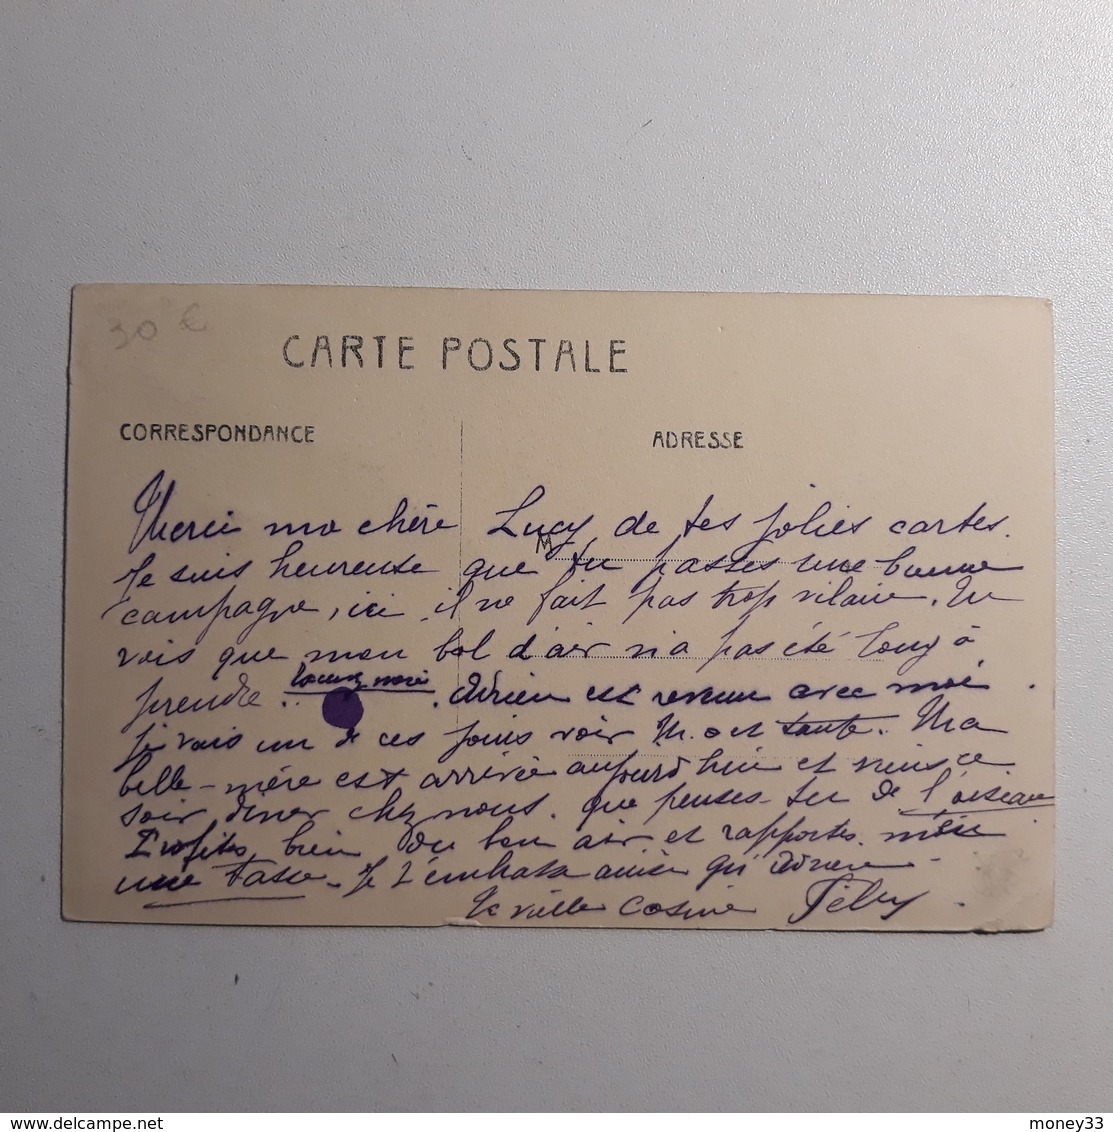 30 €
CARTE POSTALE
CORRESPONDANCE
ADRESSE
M
Merci ma chère Lucy de tes jolies cartes.
Je suis heureuse que tu passes une bonne
campagne, ici il ne fait pas trop vilain. Tu
vois que mon bol d'air n'a pas été long à
prendre. Adrien est revenu avec moi.
Je vais un de ces jours voir M. et tante. Ma
belle-mère est arrivée aujourd'hui et vient ce
soir diner chez nous. que penses-tu de l'oiseau
Profites bien du bon air et rapportes. m'en
une tasse. Je t'embrasse ainsi qu'Adrien
Ta vieille cosine
www.delcampe.net
money33